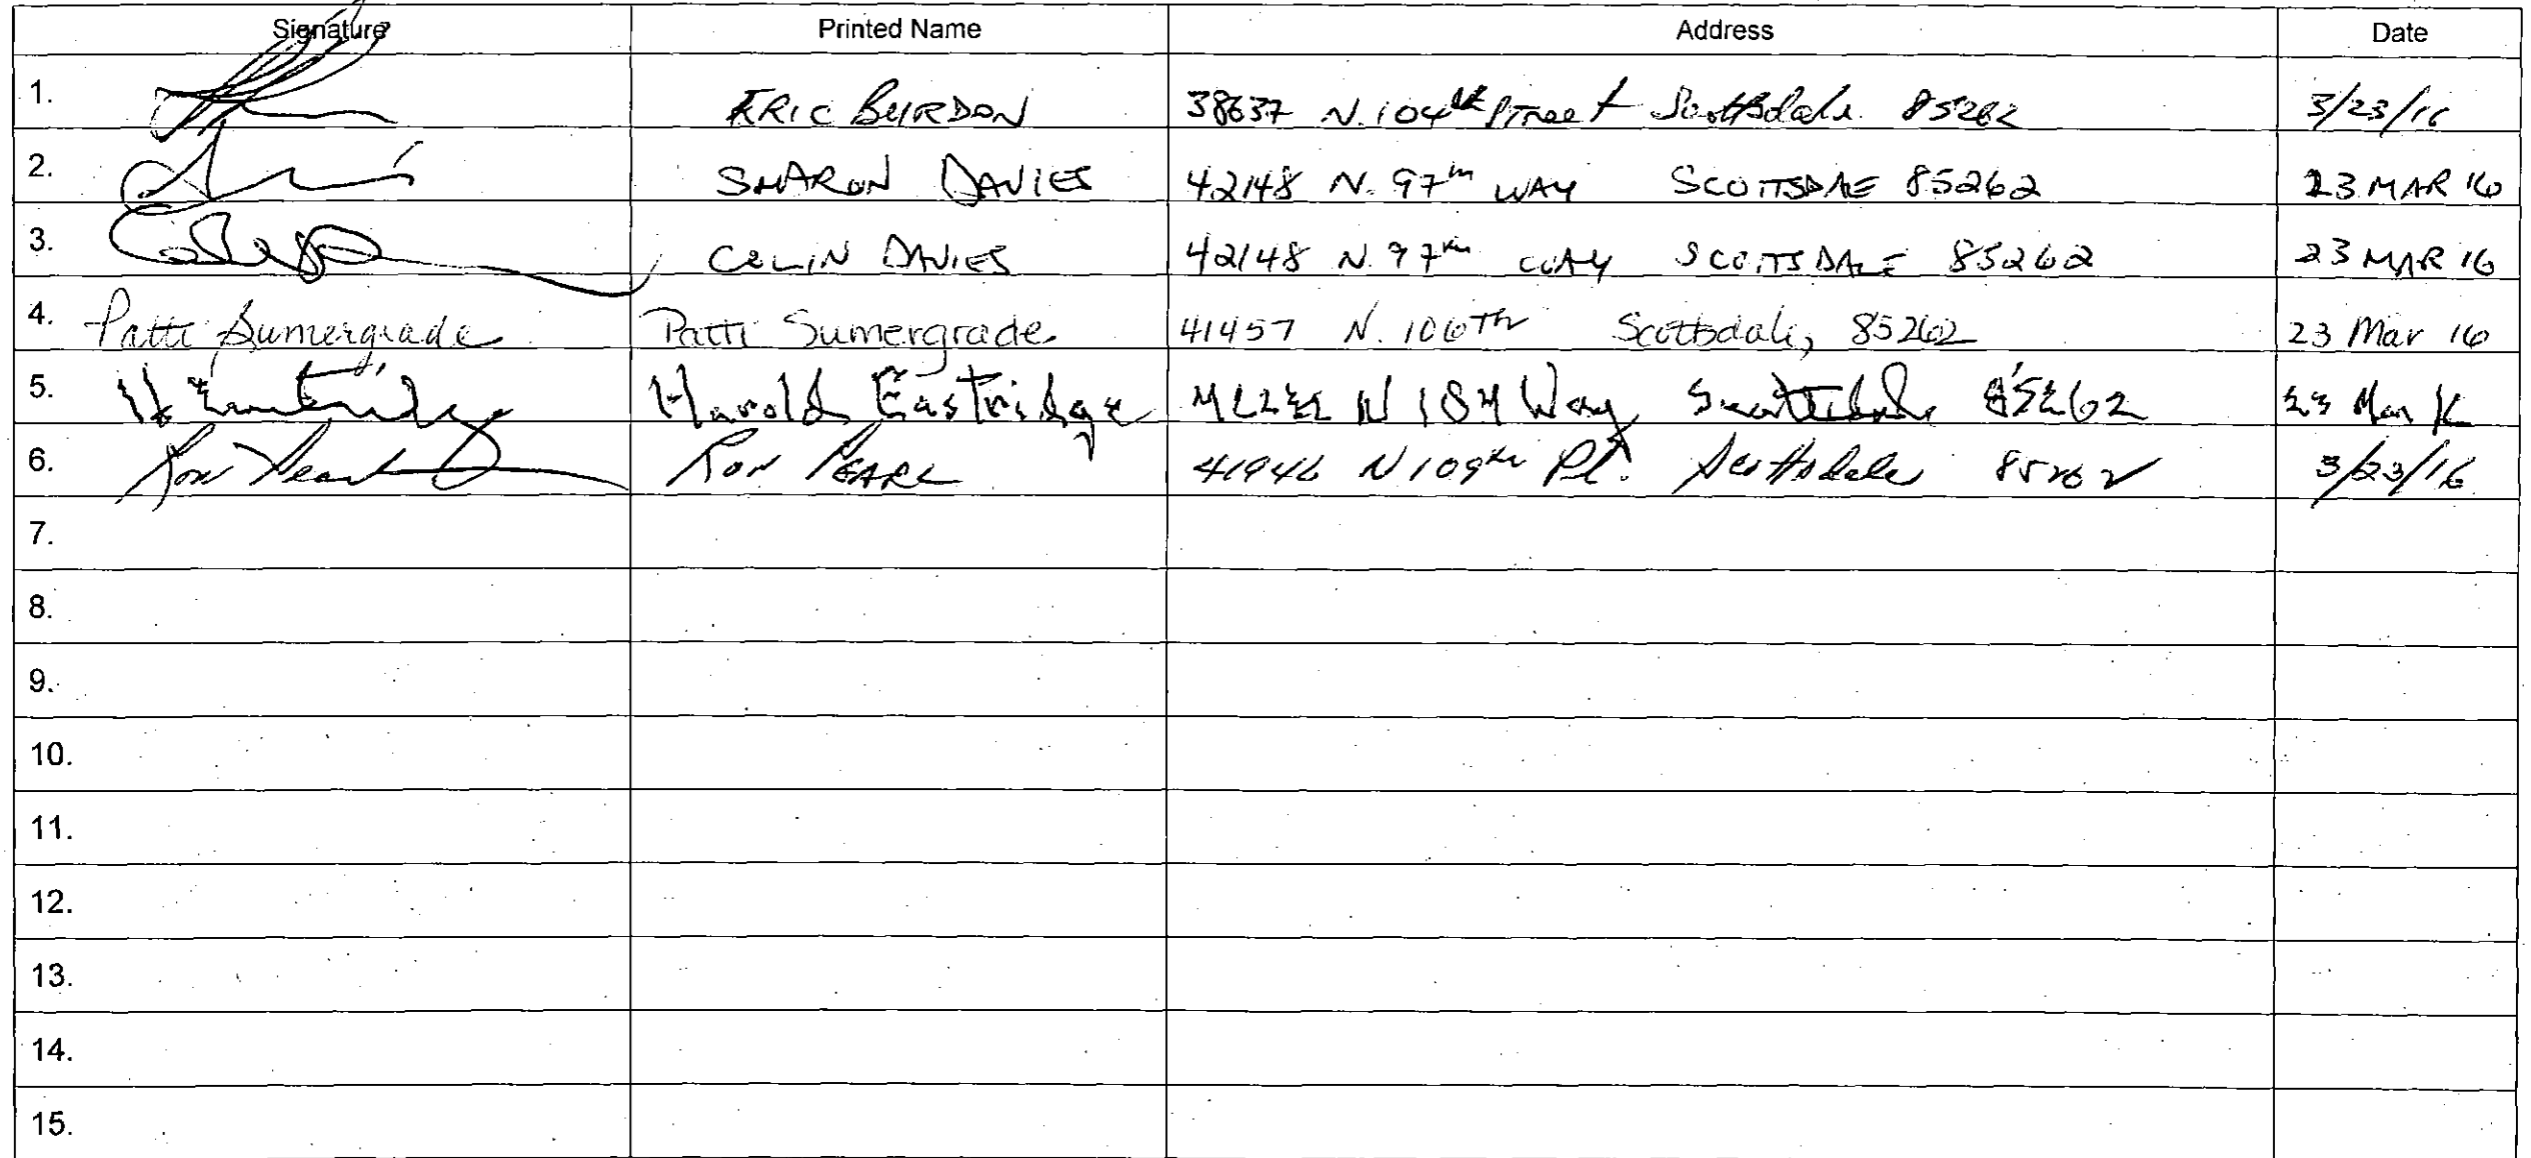 Signature Printed Name Address Date
1. ERIC BURDON 38637 N. 104th Street Scottsdale 85262 3/23/16
2. SHARON DAVIES 42148 N. 97th WAY SCOTTSDALE 85262 23 MAR 16
3. COLIN DAVIES 42148 N. 97th WAY SCOTTSDALE 85262 23 MAR 16
4. Patti Sumergrade Patti Sumergrade 41457 N. 106TH Scottsdale, 85262 23 Mar 16
5. H Eastridge Harold Eastridge N Way Scottsdale 85262 23 Mar 16
6. Ron Pearl RON PEARL 41946 N 109th Pl. Scottsdale 85262 3/23/16
7.
8.
9.
10.
11.
12.
13.
14.
15.